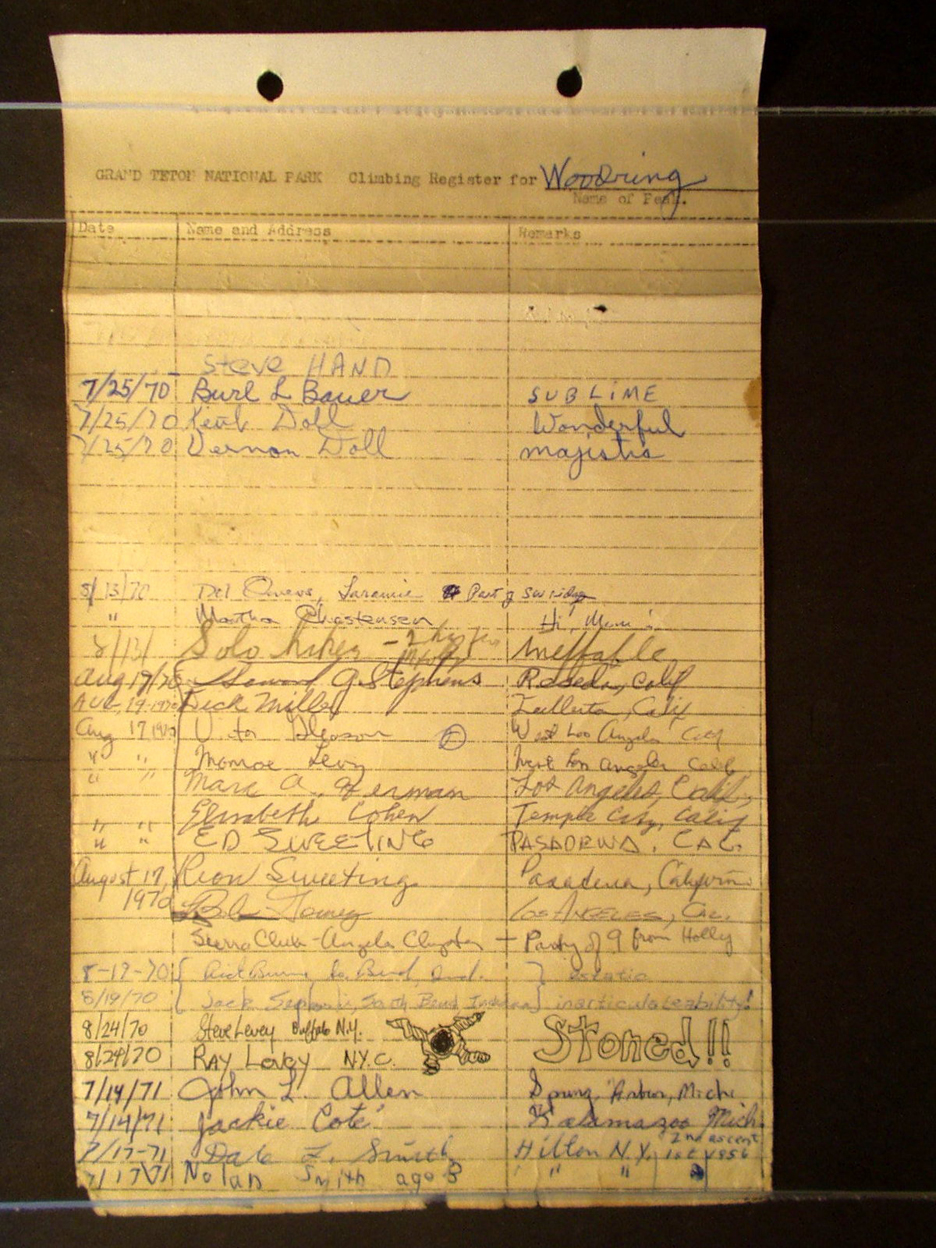 GRAND TETON NATIONAL PARK Climbing Register for Woodring
Name of Peak.
Date Name and Address Remarks
Steve HAND
7/25/70 Burl L Bauer SUBLIME
7/25/70 Kent Doll Wonderful
7/25/70 Vernon Doll majistic
8/13/70 Del Owens, Laramie Part of
" Martha Christensen Hi, Mom!
8/13/ Solo hiker - 2 hrs Ineffable
Aug 19/70 G. Stephens Reseda, Calif
AUG, 19-1970 Dick Miller Fullerton, Calif
Aug 17 1970 Victor Gleason West Los Angeles Calif
" " Monroe Levy West Los Angeles Calif
" Marc A. Herman Los Angeles, Calif,
Elizabeth Cohen Temple City, Calif
" " ED SWEETING PASADENA, CAL.
" "
August 17, Reon Sweeting Pasadena, California
1970 Bob LOS ANGELES, CAL.
Sierra Club - Angeles Chapter - Party of 9 from Holly
8-17-70 { So. Bend, Ind. }
8/19/70 { Jack South Bend Indiana } inarticulateability!
8/24/70 Steve Levey Buffalo N.Y. Stoned!!
8/24/70 RAY Levey N.Y.C.
7/14/71 John L. Allen Spring Arbor, Mich
7/14/71 Jackie Coté Kalamazoo Mich.
7/17-71 Dale Z. Smith Hilton N.Y. 2nd ascent
1st 1956
7/17/71 Nolan Smith age 8 " "